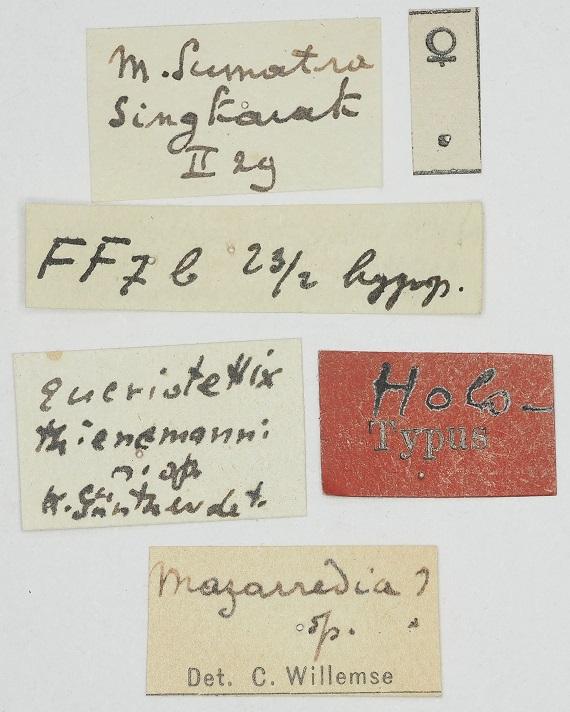 M. Sumatra
Singkarak
II 29
♀
FF7b 23/2 hypop.
Eucriotettix
thienemanni
n. sp.
K. Günther det.
Holo-
Typus
Mazarredia ?
sp.
Det. C. Willemse